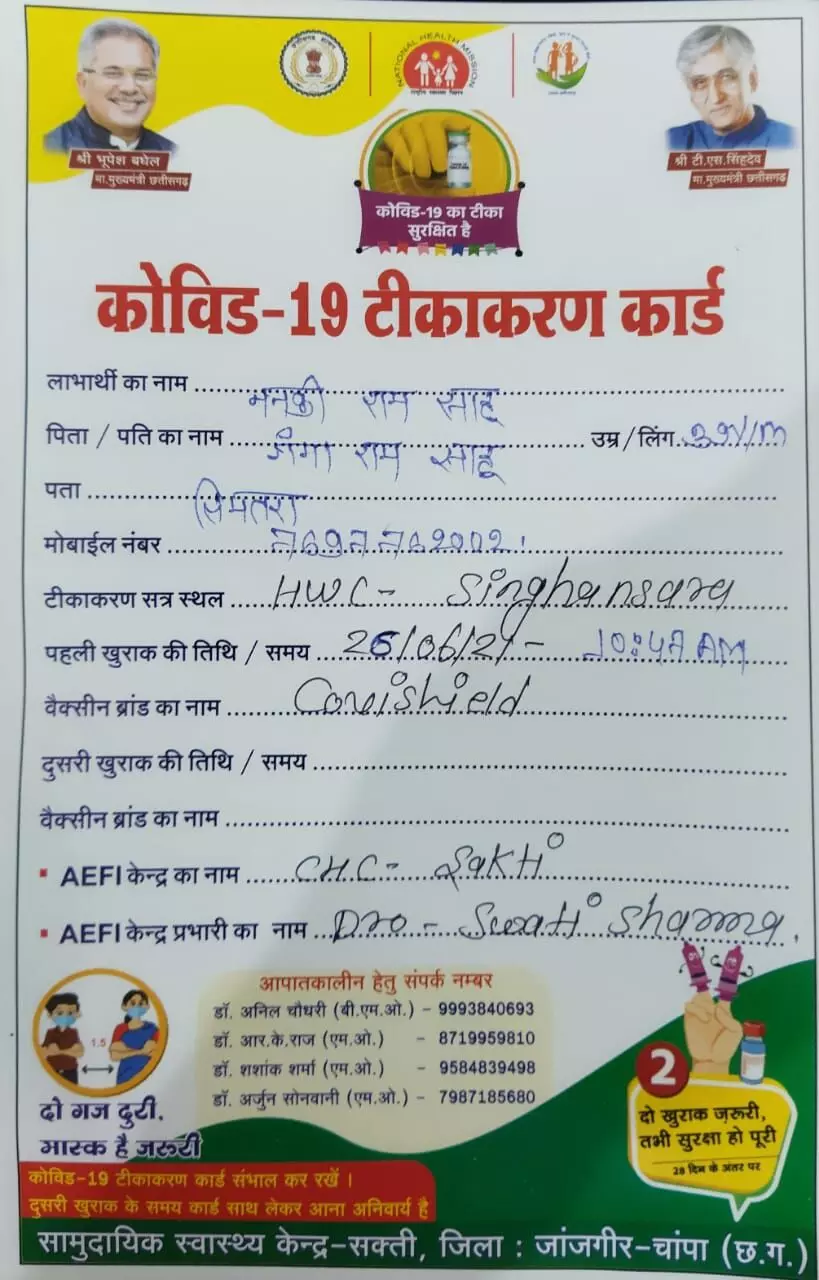 NATIONAL HEALTH MISSION
श्री भूपेश बघेल
मा.मुख्यमंत्री छत्तीसगढ़
श्री टी.एस.सिंहदेव
मा.मुख्यमंत्री छत्तीसगढ़
कोविड-19 का टीका
सुरक्षित है
कोविड-19 टीकाकरण कार्ड
लाभार्थी का नाम मनकी राम साहू
पिता / पति का नाम गंगा राम साहू उम्र / लिंग 39Y/M
पता
मोबाईल नंबर 7697762002
टीकाकरण सत्र स्थल HWC- Singhansara
पहली खुराक की तिथि / समय 26/06/21 - 10:47 AM
वैक्सीन ब्रांड का नाम Covishield
दुसरी खुराक की तिथि / समय
वैक्सीन ब्रांड का नाम
AEFI केन्द्र का नाम CHC- Sakti
AEFI केन्द्र प्रभारी का नाम Dro - Swati Sharma
आपातकालीन हेतु संपर्क नम्बर
डॉ. अनिल चौधरी (बी.एम.ओ.) - 9993840693
डॉ. आर.के.राज (एम.ओ.) - 8719959810
डॉ. शशांक शर्मा (एम.ओ.) - 9584839498
डॉ. अर्जुन सोनवानी (एम.ओ.) - 7987185680
1.5
दो गज दुरी,
मास्क है जरूरी
2
दो खुराक ज़रूरी,
तभी सुरक्षा हो पूरी
28 दिन के अंतर पर
कोविड-19 टीकाकरण कार्ड संभाल कर रखें ।
दुसरी खुराक के समय कार्ड साथ लेकर आना अनिवार्य है
सामुदायिक स्वास्थ्य केन्द्र-सक्ती, जिला : जांजगीर-चांपा (छ.ग.)